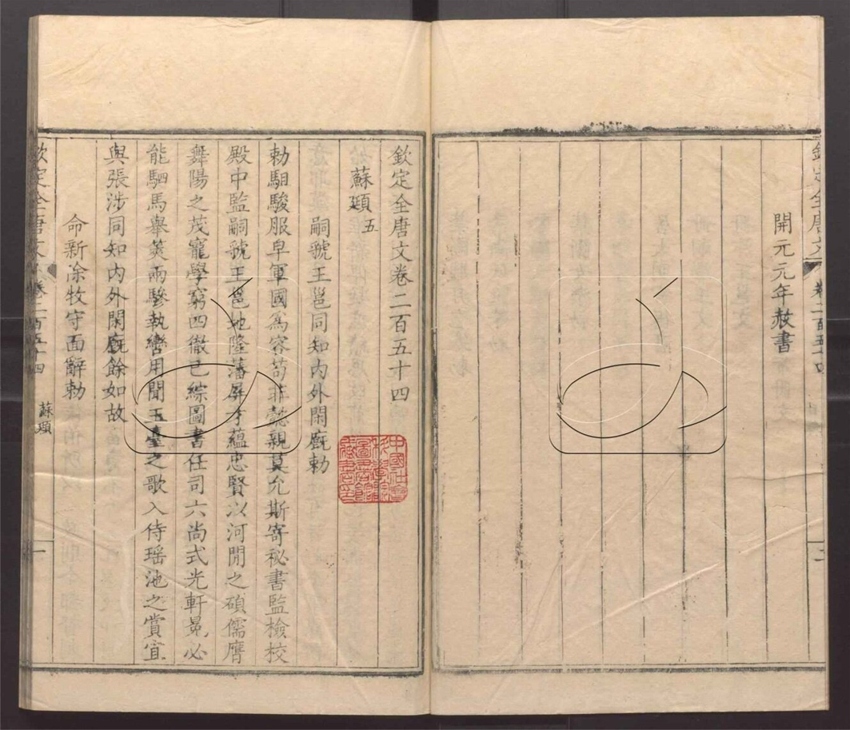 欽定全唐文
卷二百五十四
開元元年赦書
欽定全唐文卷二百五十四
蘇頲五
嗣號王邕同知内外閑廐勅
勅駔駿服皁軍國爲容苟非懿親莫允斯寄秘書監檢校
殿中監嗣號王邕地隆藩屏才蘊忠賢以河閒之碩儒膺
舞陽之茂寵學窮四徹已綜圖書任司六尚式光軒冕必
能駟馬舉筴兩驂執轡用聞玉臺之歌入侍瑶池之賞宜
與張涉同知内外閑廐餘如故
命新除牧守面辭勅
欽定全唐文
卷二百五十四
蘇頲
一